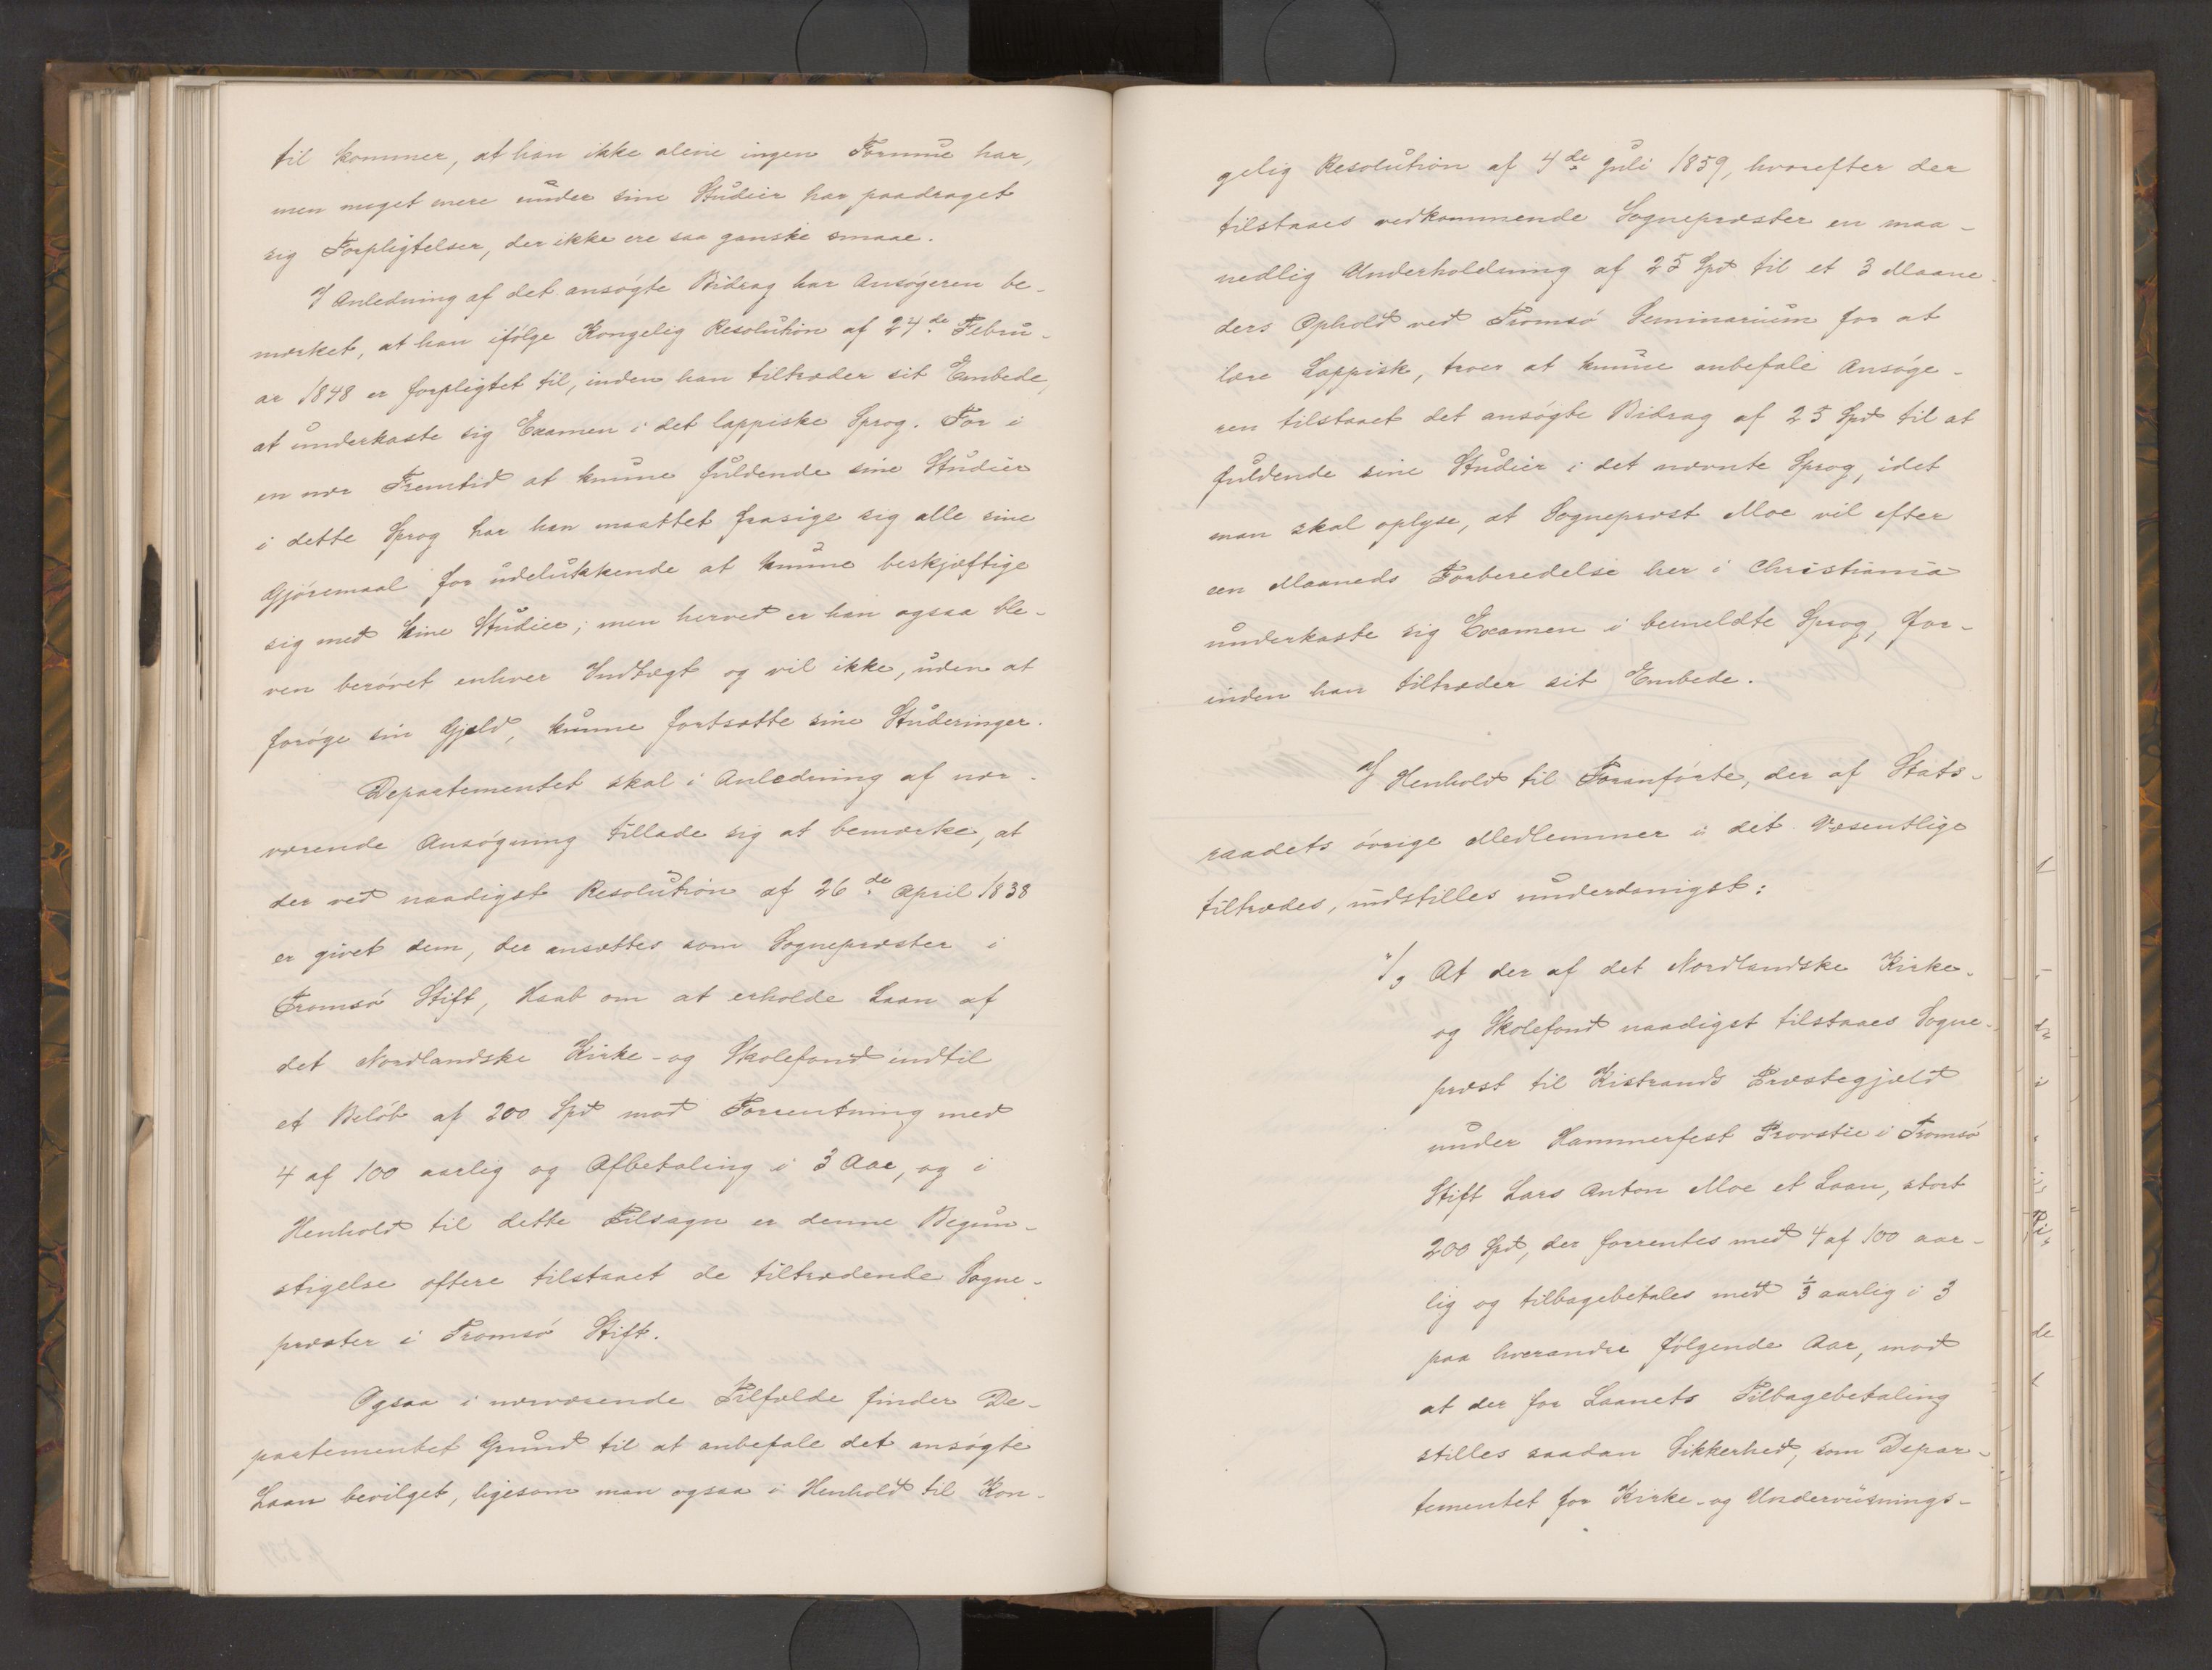 til kommer, at han ikke alene ingen Formue har,
men meget mere under sine Studier har paadraget
sig Forpligtelser, der ikke ere saa ganske smaae.
I Anledning af det ansøgte Bidrag har Ansøgeren be-
mærket, at han ifølge Kongelig Resolution af 24de Febru-
ar 1848 er forpligtet til, inden han tiltræder sit Embede,
at underkaste sig Examen i det lappiske Sprog. For i
en nær Fremtid at kunne fuldende sine Studier
i dette Sprog har han maattet frasige sig alle sine
Gjøremaal for udelukkende at kunne beskjæftige
sig med hine Studier; men herved er han ogsaa ble-
ven berøvet enhver Indtægt og vil ikke, uden at
forøge sin Gjæld, kunne fortsætte sine Studeringer.
Departementet skal i Anledning af nær-
værende Ansøgning tillade sig at bemærke, at
der ved naadigst Resolution af 26de April 1838
er givet dem, der ansættes som Sognepræster i
Tromsø Stift, Haab om at erholde Laan af
det Nordlandske Kirke- og Skolefond indtil
et Beløb af 200 Spd mod Forrentning med
4 af 100 aarlig og Afbetaling i 3 Aar, og i
Henhold til dette Tilsagn er denne Begun-
stigelse oftere tilstaaet de tiltrædende Sogne-
præster i Tromsø Stift.
Ogsaa i nærværende Tilfælde finder De-
partementet Grund til at anbefale det ansøgte
Laan bevilget, ligesom man ogsaa i Henhold til Kon-
gelig Resolution af 4de Juli 1859, hvorefter der
tilstaaes vedkommende Sognepræster en maa-
nedlig Underholdning af 25 Spd til et 3 Maane-
ders Ophold ved Tromsø Seminarium for at
lære Lappisk, troer at kunne anbefale Ansøge-
ren tilstaaet det ansøgte Bidrag af 25 Spd til at
fuldende sine Studier i det nævnte Sprog, idet
man skal oplyse, at Sognepræst Moe vil efter
een Maaneds Forberedelse her i Christiania
underkaste sig Examen i bemeldte Sprog, for-
inden han tiltræder sit Embede.
I Henhold til Foranførte, der af Stats-
raadets øvrige Medlemmer i det Væsentlige
tiltrædes, indstilles underdanigst:
1/, At der af det Nordlandske Kirke-
og Skolefond naadigst tilstaaes Sogne-
præst til Kistrands Præstegjæld
under Hammerfest Provstie i Tromsø
Stift Lars Anton Moe et Laan, stort
200 Spd, der forrentes med 4 af 100 aar-
lig og tilbagebetales med 1/3 aarlig i 3
paa hverandre følgende Aar, mod
at der for Laanets Tilbagebetaling
stilles saadan Sikkerhed, som Depar-
tementet for Kirke- og Underviisnings-